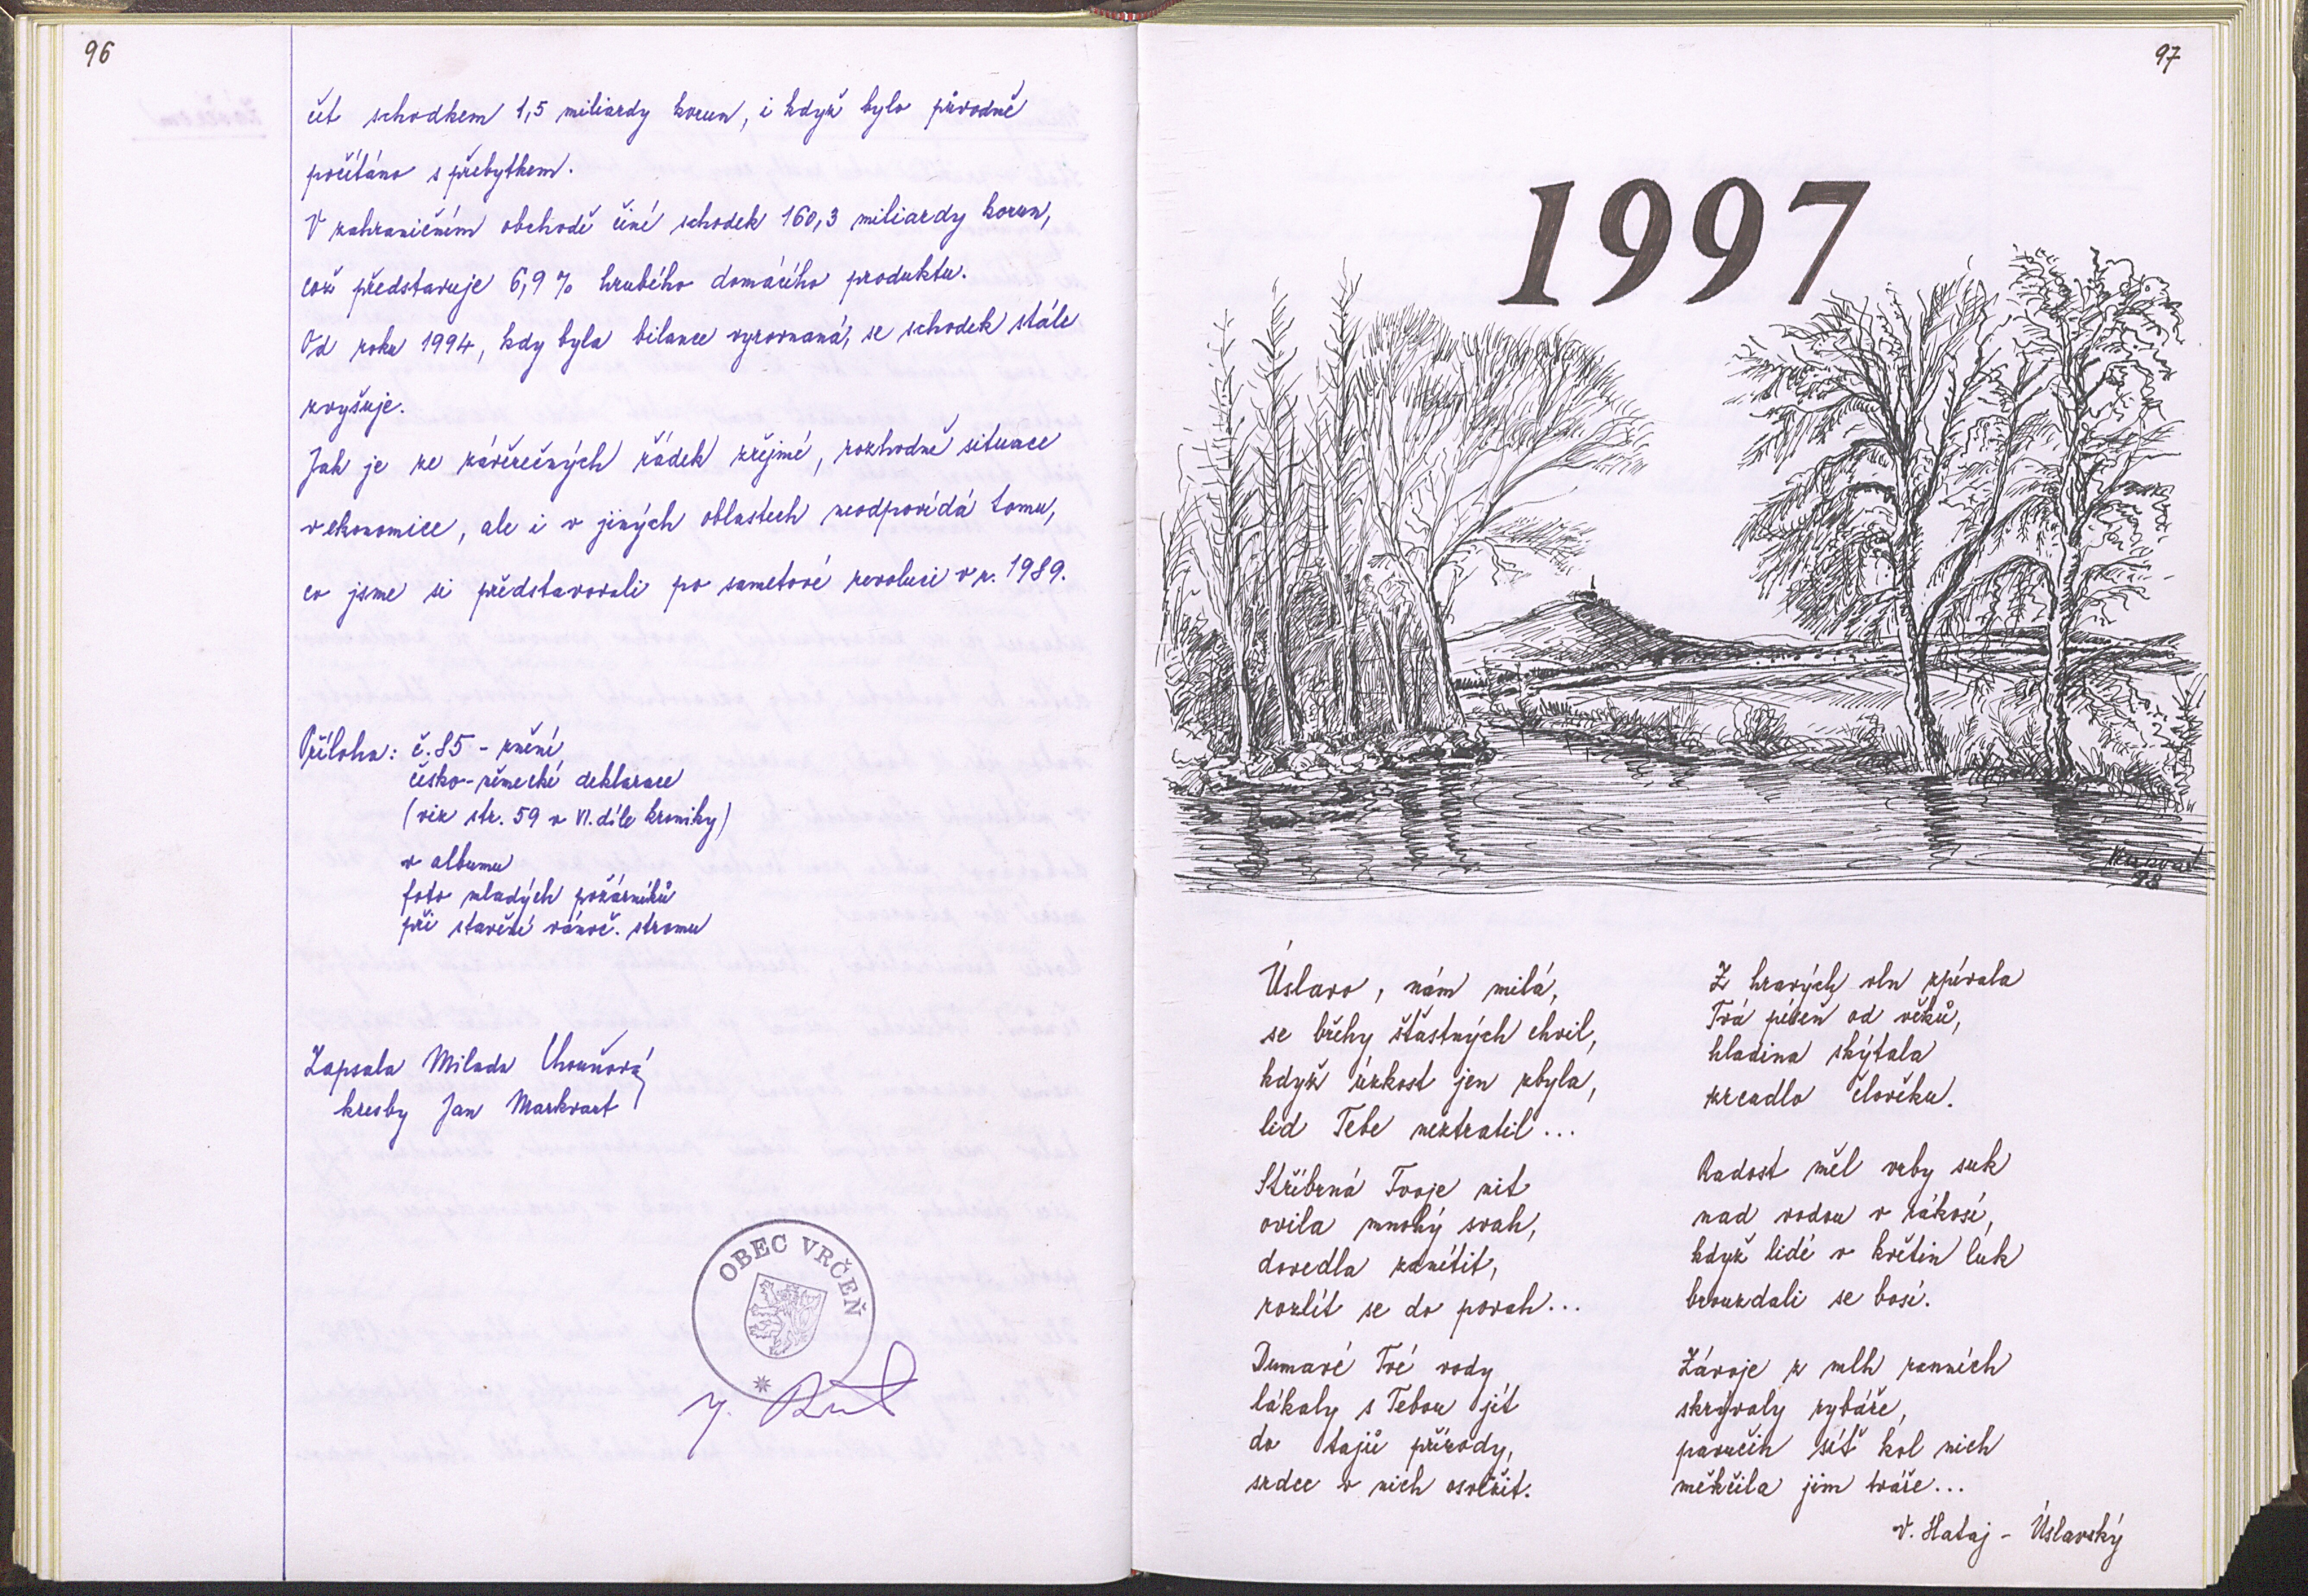 96
čet schodkem 1,5 miliardy korun, i když bylo původně
počítáno s přebytkem.
V zahraničním obchodě činí schodek 160,3 miliardy korun,
což představuje 6,9% hrubého domácího produktu.
Od roku 1994, kdy byla bilance vyrovnaná, se schodek stále
zvyšuje.
Jak je ze závěrečných řádek zřejmé, rozhodně situace
v ekonomice, ale i v jiných oblastech neodpovídá tomu,
co jsme si představovali po sametové revoluci v r. 1989.
Příloha: č. 85 - znění
česko-německé deklarace
(viz str. 59 v VI. díle kroniky)
v albumu
foto mladých požárníků
při stavění vánoč. stromu
Zapsala Milada
kresby Jan Markvart
OBEC VRČEŇ
97
1997
Markvart
98
Úslavo, nám milá,
se břehy šťastných chvil,
když úzkost jen zbyla,
lid Tebe neztratil...
Stříbrná Tvoje nit
ovila mnohý svah,
dovedla zanítit,
rozlít se do povah...
Dumavé Tvé vody
lákaly s Tebou jít
do tajů přírody,
srdce v nich osvěžit.
Z hravých vln zpívala
Tvá píseň od věků,
hladina skýtala
zrcadlo člověku.
Radost měl vrby suk
nad vodou v rákosí,
když lidé v květin luk
brouzdali se bosí.
Závoje z mlh ranních
skrývaly rybáře,
pavučin síť kol nich
měkčila jim tváře...
V. Hataj - Úslavský